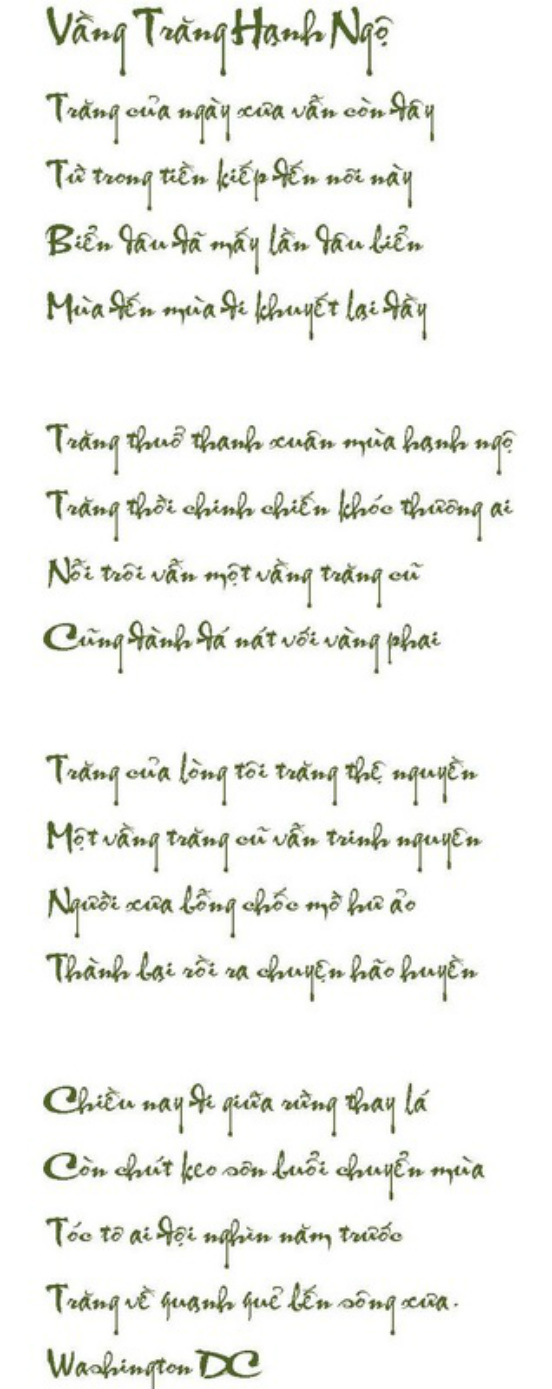 Vầng Trăng Hạnh Ngộ
Trăng của ngày xưa vẫn còn đây
Từ trong tiền kiếp đến nơi này
Biển dâu đã mấy lần dâu biển
Mùa đến mùa đi khuyết lại đầy
Trăng thuở thanh xuân mùa hạnh ngộ
Trăng thời chinh chiến khóc thương ai
Nổi trôi vẫn một vầng trăng cũ
Cũng đành đá nát với vàng phai
Trăng của lòng tôi trăng thệ nguyền
Một vầng trăng cũ vẫn trinh nguyên
Người xưa bỗng chốc mờ hư ảo
Thành bại rồi ra chuyện hão huyền
Chiều nay đi giữa rừng thay lá
Còn chút keo sơn buổi chuyển mùa
Tóc tơ ai đội nghìn năm trước
Trăng về quạnh quẽ bến sông xưa.
Washington DC